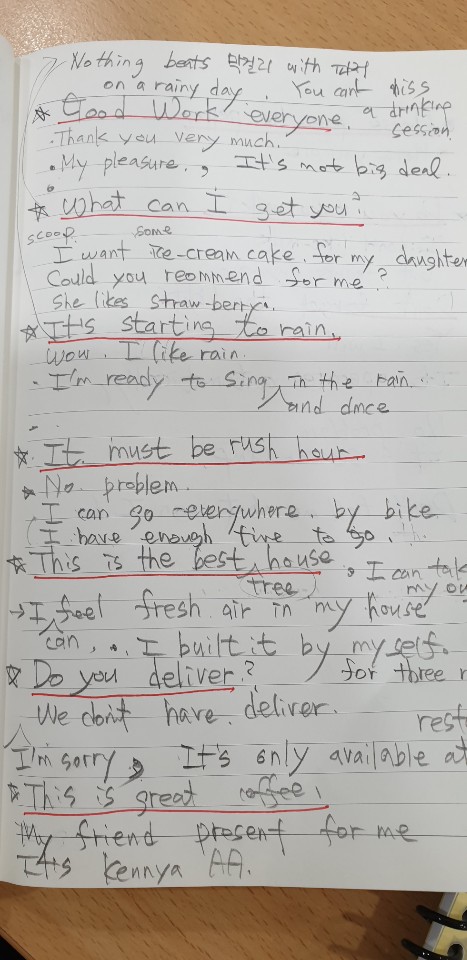 Nothing beats 막걸리 with 파전
on a rainy day. You can't miss
a drinking
session.
☆ Good Work everyone.
. Thank you very much.
. My pleasure. , It's not big deal.
☆ What can I get you?
scoop some
I want ice-cream cake. for my daughter
Could you reommend for me?
She likes straw-berry.
☆ It's starting to rain.
Wow. I like rain.
. I'm ready to sing in the rain.
and dnce
☆ It must be rush hour
No problem.
I can go everywhere. by bike
I have enough time to go.
☆ This is the best house , I can
tree my
→ I feel fresh air in my house
can, .. I built it by my self.
☆ Do you deliver? for three
We don't have. deliver.
I'm sorry , It's only available at
☆ This is great coffee.
My friend present for me
It's kennya AA.